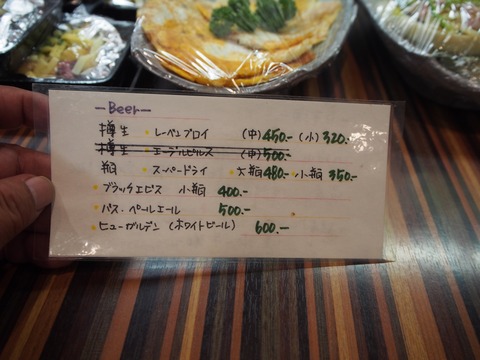 -Beer-
樽生 ・レーベンブロイ (中)450.- (小)320.-
樽生 ・エーデルピルス (中)500.-
瓶 ・スーパードライ 大瓶480.- 小瓶350.-
・ブラックエビス 小瓶 400.-
・バス・ペールエール 500.-
・ヒューガルデン (ホワイトビール) 600.-